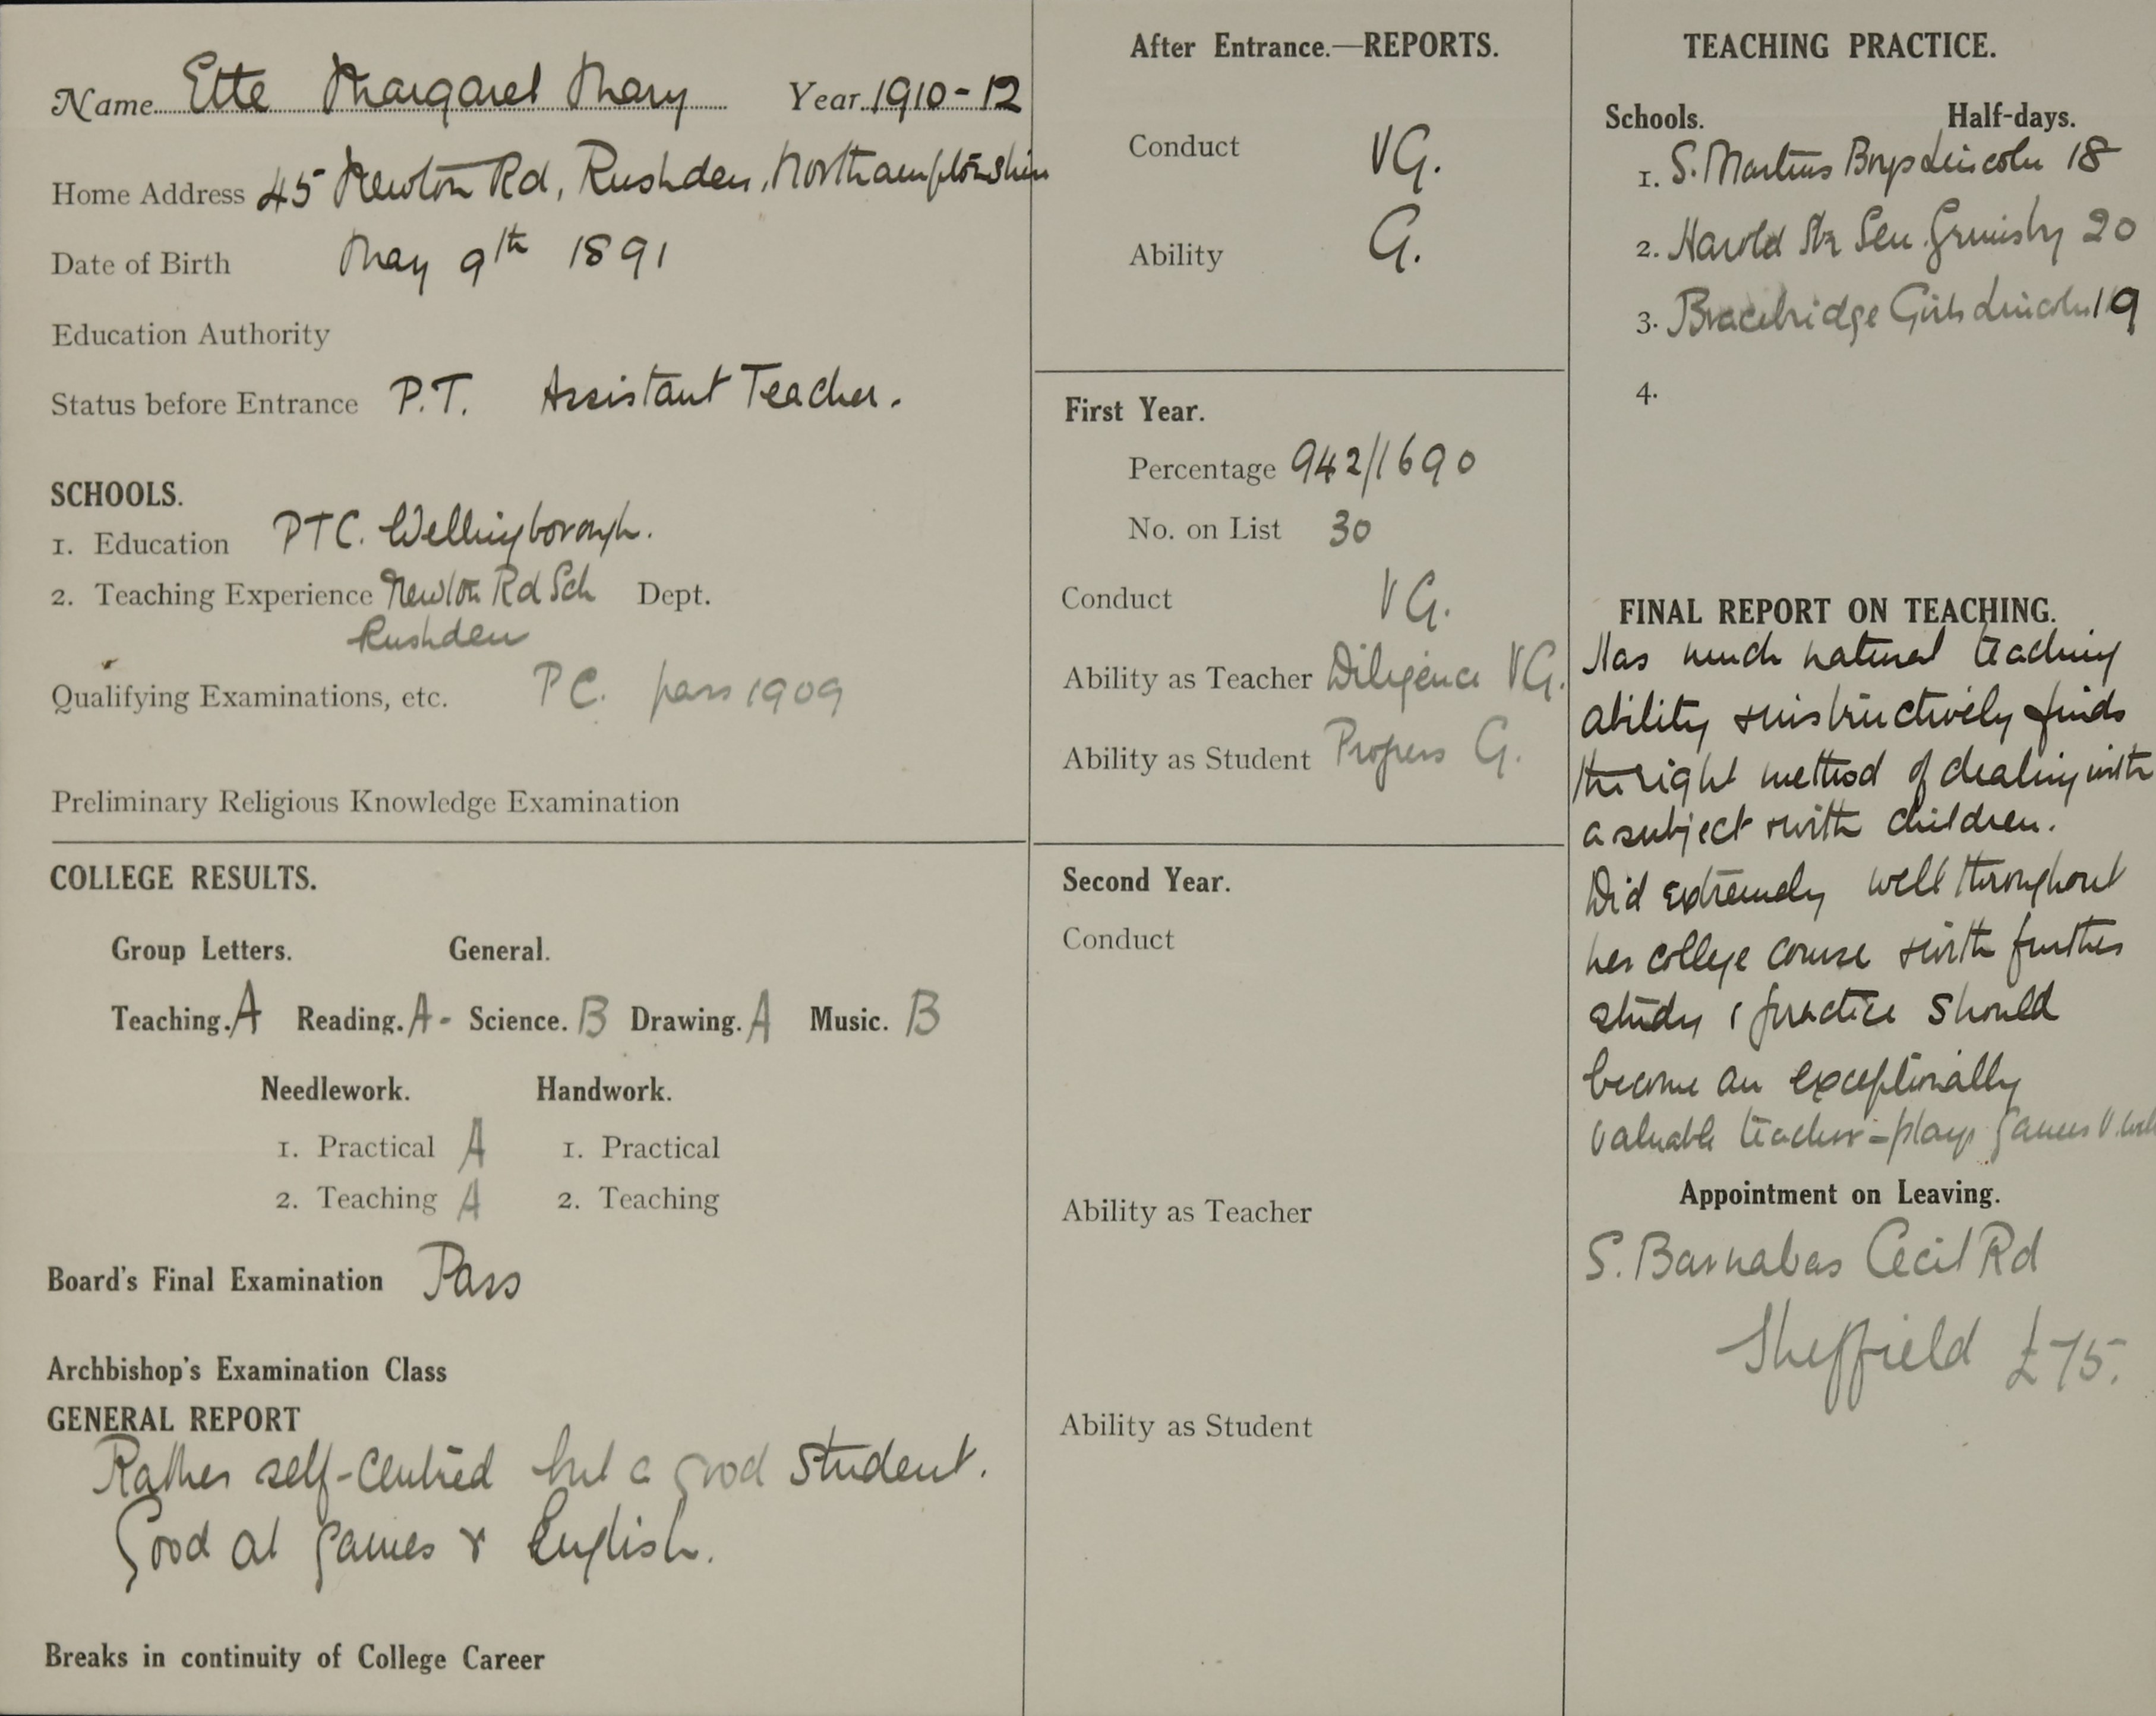 Name Ette Margaret Mary Year 1910-12
Home Address 45 Newton Rd, Rushden, Northamptonshire
Date of Birth May 9th 1891
Education Authority
Status before Entrance P.T. Assistant Teacher.
SCHOOLS.
1. Education PTC. Wellingborough.
2. Teaching Experience Newton Rd Sch Dept.
Rushden
Qualifying Examinations, etc. P.C. pass 1909
Preliminary Religious Knowledge Examination
COLLEGE RESULTS.
Group Letters. General.
Teaching. A Reading. A- Science. B Drawing. A Music. B
Needlework. Handwork.
1. Practical A 1. Practical
2. Teaching A 2. Teaching
Board's Final Examination Pass
Archbishop's Examination Class
GENERAL REPORT
Rather self-centred but a good student.
Good at games & English.
Breaks in continuity of College Career
After Entrance.—REPORTS.
Conduct VG.
Ability G.
First Year.
Percentage 942/1690
No. on List 30
Conduct VG.
Ability as Teacher Diligence VG.
Ability as Student Progress G.
Second Year.
Conduct
Ability as Teacher
Ability as Student
TEACHING PRACTICE.
Schools. Half-days.
1. S. Martins Boys Lincoln 18
2. Harold Str Sen. Grimsby 20
3. Bracebridge Girls Lincoln 19
4.
FINAL REPORT ON TEACHING.
Has much natural teaching
ability & instructively finds
the right method of dealing with
a subject & with children.
Did extremely well throughout
her college course & with further
study & practice should
become an exceptionally
valuable teacher - plays games V. well
Appointment on Leaving.
S. Barnabas Cecil Rd
Sheffield £75.